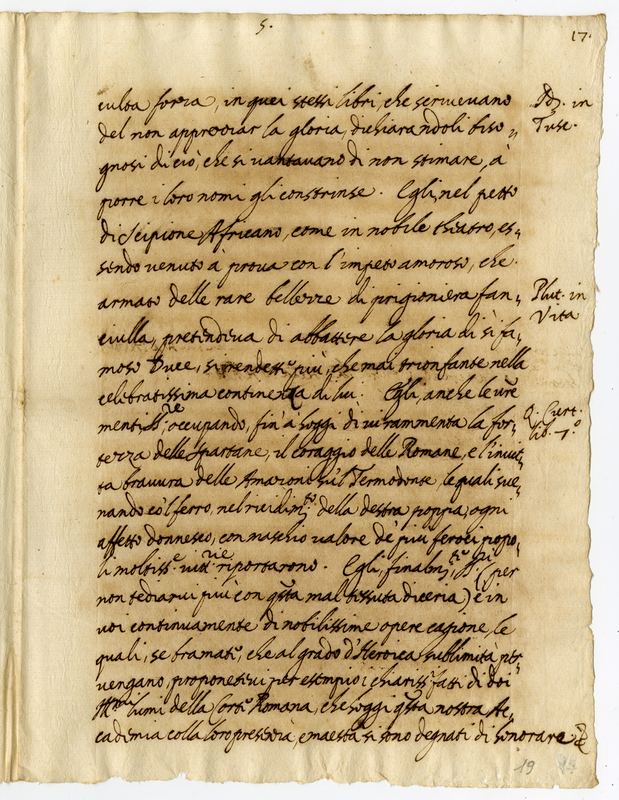 5.
17.
culta forza, in quei stessi libri, che scriveuano
del non apprezzar la gloria, dichiarandoli biso„
gnosi di ciò, che si vantauano di non stimare, à
porre i loro nomi gli constrinse. Egli, nel petto
di Scipione Africano, come in nobile theatro, es„
sendo venuto à prova con l'impeto amoroso, che
armato delle rare bellezze di prigioniera fan„
ciulla, pretendeua di abbattere la gloria di sì fa„
moso Duce, si rendette più, che mai trionfante nella
celebratissima continenza di lui. Egli, anche le vre
menti, occupando, fin'a hoggi di vi rammenta la for„
tezza delle Spartane, il coraggio delle Romane, e l'inuit„
ta brauura delle Amazoni sù'l Termodonte, le quali sue„
nando co'l ferro, nel recidimto della destra poppa, ogni
affetto donnesco, con maschio valore de' più feroci popo„
li moltisse. vittrie riportarono. Egli, finalmte, (per
non tediarui più con qsta mal tessuta diceria) è in
voi continuamente di nobilissime opere cagione, le
quali, se bramate, che al grado d'Heroica sublimità per„
vengano, proponeteui per esempio i chiariss. fatti di doi
lumi della Corte Romana, che hoggi qsta nostra Ac„
cademia colla loro presenza, e maestà si sono degnati di honorare
in
Tusc.
Plut. in
Vita
Q. Curt.
lib. 7.º
19